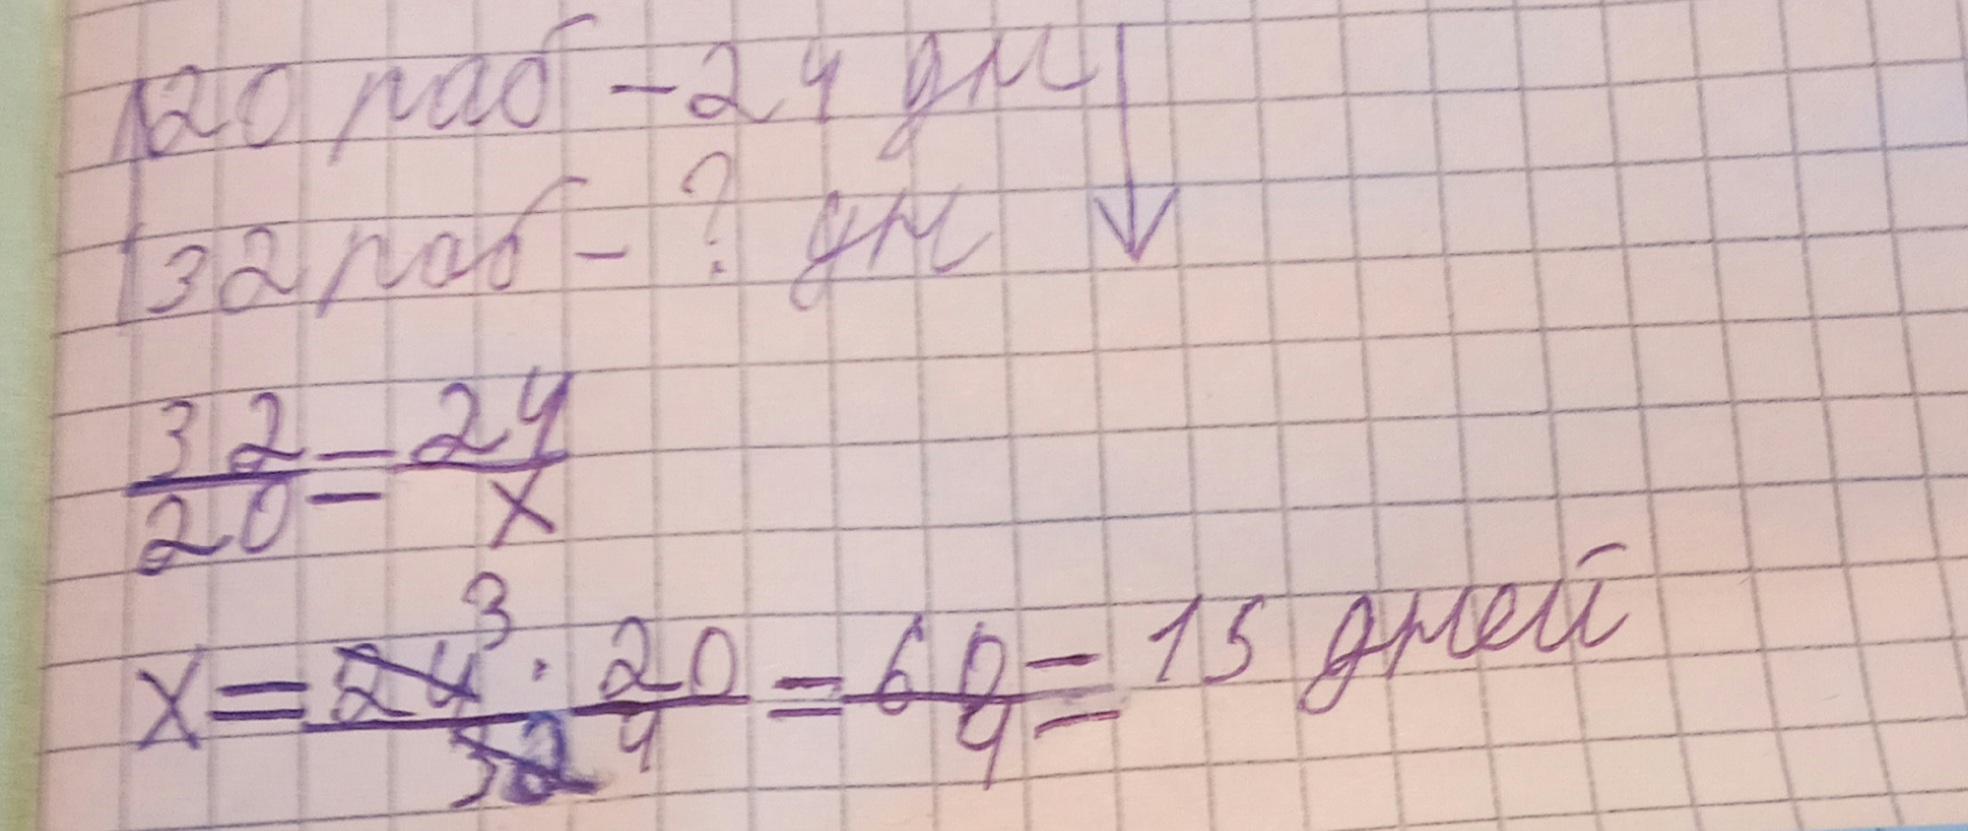 20 раб - 24 дн
32 раб - ? дн
32/20 = 24/x
x = 24³ · 20 / 32 4 = 60/4 = 15 дней